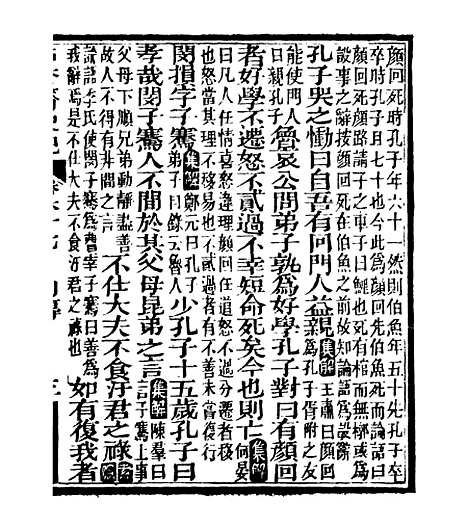 顏回死時孔子年六十一然則伯魚年五十先孔子卒
卒時孔子且七十也今此為顏回先伯魚死而論語曰
顏回死顏路請子之車子曰鯉也死有棺而無槨或為
設事之辭按顏回死在伯魚之前故知論語為設辭
孔子哭之慟曰自吾有回門人益親集解王肅曰顏回
為孔子胥附之友
能使門人
日親孔子魯哀公問弟子孰為好學孔子對曰有顏回
者好學不遷怒不貳過不幸短命死矣今也則亡集解
何晏
曰凡人任情喜怒違理顏回任道怒不過分遷者移
也怒當其理不移易也不貳過者有不善未嘗復行
閔損字子騫集解鄭元曰孔子
弟子目錄云魯人少孔子十五歲孔子曰
孝哉閔子騫人不間於其父母昆弟之言集解陳羣曰
言子騫上事
父母下順兄弟動靜盡善
故人不得有非間之言不仕大夫不食汙君之祿索隱
論語季氏使閔子騫為費宰子騫曰善為
我辭焉是不仕大夫不食汙君之祿也如有復我者